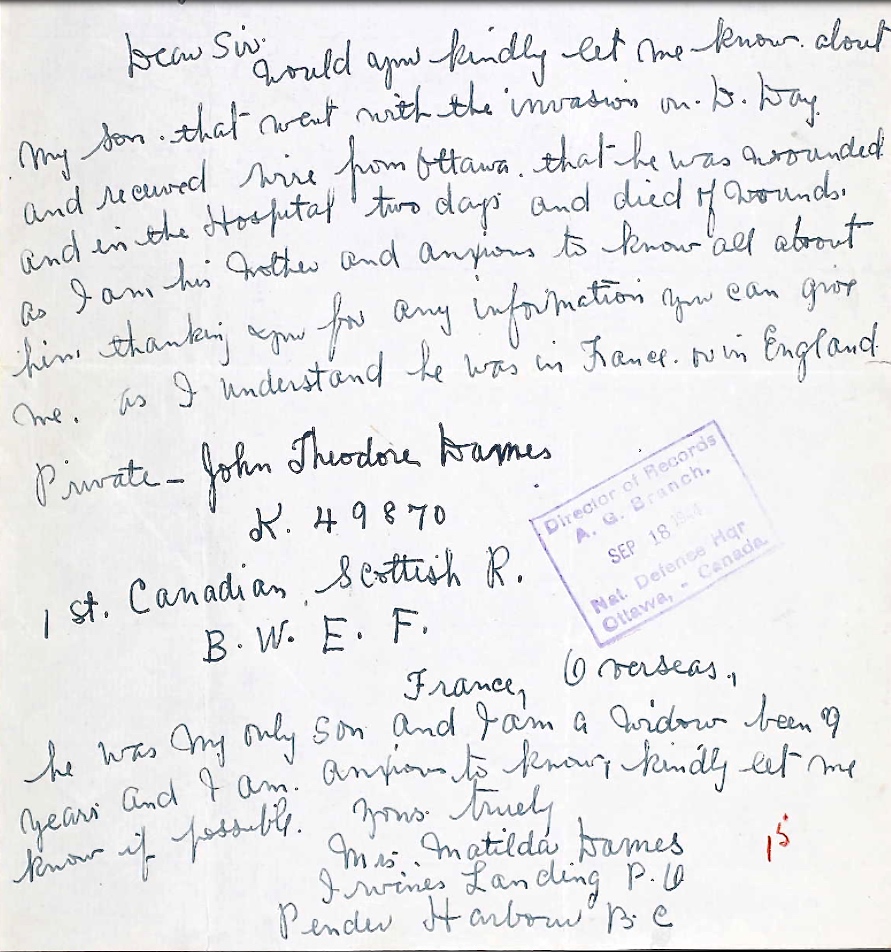 Dear Sir.
Would you kindly let me know. about
my son. that went with the invasion on. D. Day.
and received wire from Ottawa. that he was wounded
and in the Hospital two days and died of wounds.
as I am his Mother and anxious to know all about
him. thanking you for any information you can give
me. as I understand he was in France. or in England
Private - John Theodore Dames
K. 49870
1 st. Canadian Scottish R.
B. W. E. F.
France, Overseas.,
he was my only son and I am a widow been 9
years and I am. anxious to know, kindly let me
know if possible. yours truely
Mrs. Matilda Dames
Irvines Landing P. O
Pender Harbour B. C
Director of Records
A. G. Branch.
SEP 18
Nat. Defence Hqr
Ottawa, - Canada.
15